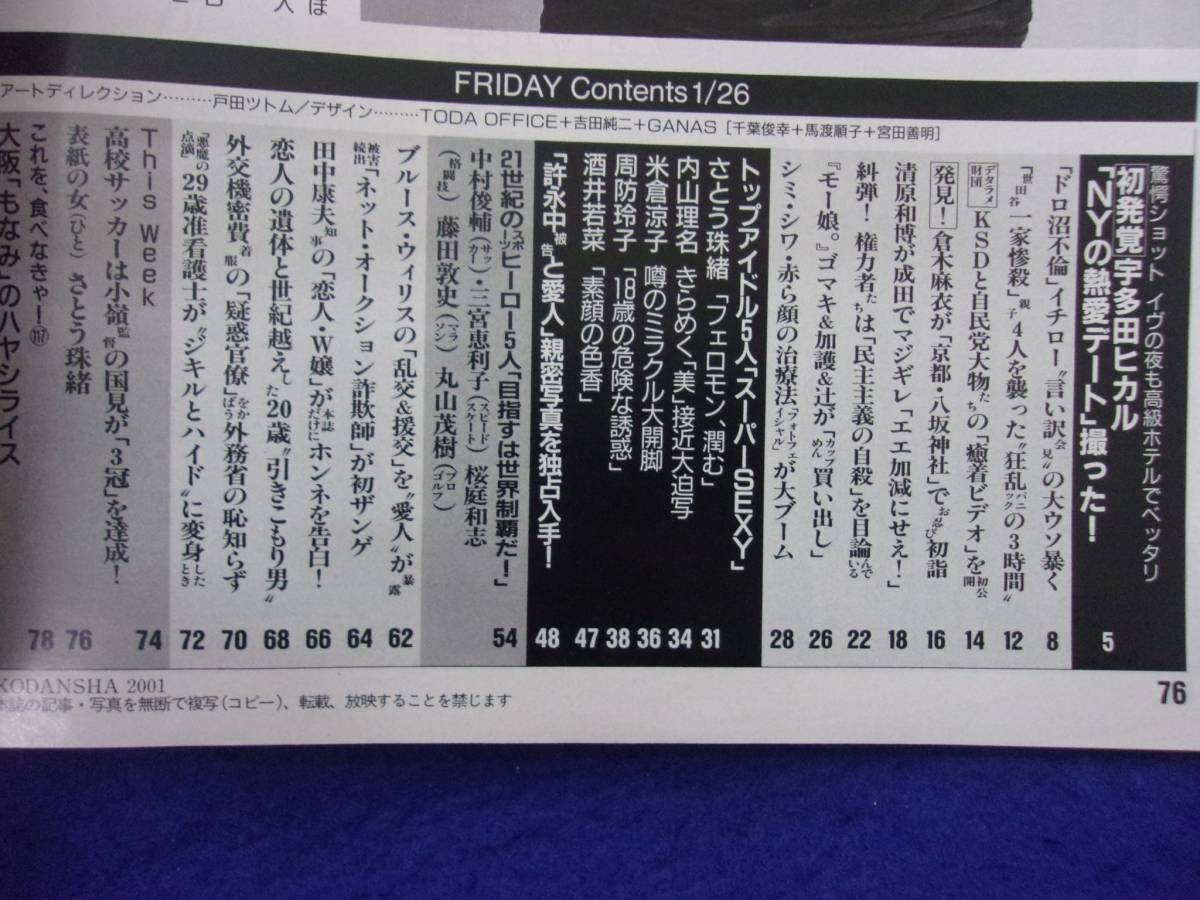 FRIDAY Contents 1/26
アートディレクション………戸田ツトム／デザイン………TODA OFFICE+吉田純二+GANAS［千葉俊幸+馬渡順子+宮田善明］
驚愕ショット イヴの夜も高級ホテルでベッタリ
［初発覚］宇多田ヒカル
「NYの熱愛デート」撮った！ 5
「ドロ沼不倫」イチロー“言い訳会見”の大ウソ暴く 8
「世田谷一家惨殺」親子4人を襲った“狂乱パニックの3時間” 12
デタラメ財団 KSDと自民党大物たちの「癒着ビデオ」を初公開 14
発見！ 倉木麻衣が「京都・八坂神社」でお忍び初詣 16
清原和博が成田でマジギレ「エエ加減にせえ！」 18
糾弾！権力者たちは「民主主義の自殺」を目論んでいる 22
『モー娘。』ゴマキ&加護&辻が「カップめん買い出し」 26
シミ・シワ・赤ら顔の治療法「フォトフェイシャル」が大ブーム 28
トップアイドル5人「スーパーSEXY」
さとう珠緒 「フェロモン、潤む」 31
内山理名 きらめく「美」接近大迫写 34
米倉涼子 噂のミラクル大開脚 36
周防玲子 「18歳の危険な誘惑」 38
酒井若菜 「素顔の色香」 47
「許永中被告と愛人」親密写真を独占入手！ 48
21世紀のスポーツヒーロー5人「目指すは世界制覇だ！」 54
中村俊輔（サッカー）・三宮恵利子（スピードスケート）桜庭和志
（格闘技） 藤田敦史（マラソン） 丸山茂樹（プロゴルフ）
ブルース・ウィリスの「乱交&援交」を“愛人”が暴露 62
被害続出「ネット・オークション詐欺師」が初ザンゲ 64
田中康夫知事の「恋人・W嬢」が本誌だけにホンネを告白！ 66
恋人の遺体と世紀越えした20歳“引きこもり男” 68
外交機密費着服の「疑惑官僚」をかばう外務省の恥知らず 70
「悪魔の点滴」29歳准看護士が“ジキルとハイド”に変身したとき 72
This Week 74
高校サッカーは小嶺監督の国見が「3冠」を達成！
表紙の女（ひと） さとう珠緒 76
これを、食べなきゃー（117） 78
大阪「もなみ」のハヤシライス
KODANSHA 2001
本誌の記事・写真を無断で複写（コピー）、転載、放映することを禁じます
76